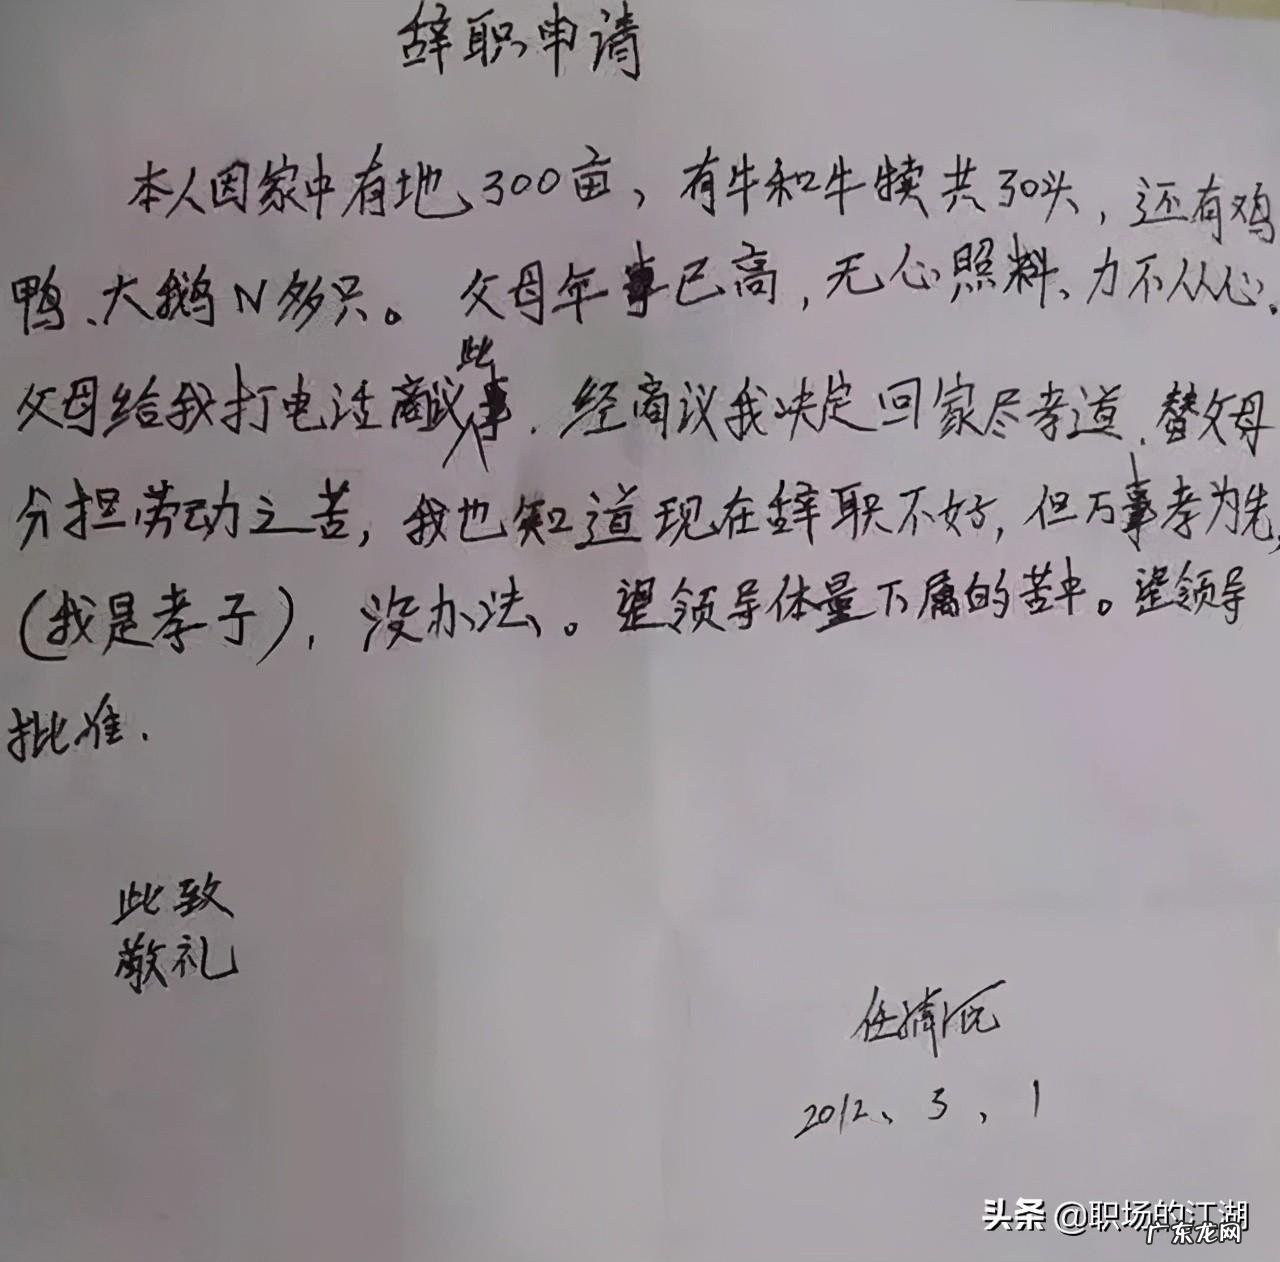 辞职申请
本人因家中有地300亩，有牛和牛犊共30头，还有鸡
鸭、大鹅N多只。父母年事已高，无心照料、力不从心。
父母给我打电话商议此事，经商议我决定回家尽孝道，替父母
分担劳动之苦，我也知道现在辞职不好，但万事孝为先，
（我是孝子），没办法。望领导体量下属的苦中。望领导
批准.
此致
敬礼
任
2012、3、1
头条 @职场的江湖
广东龙网